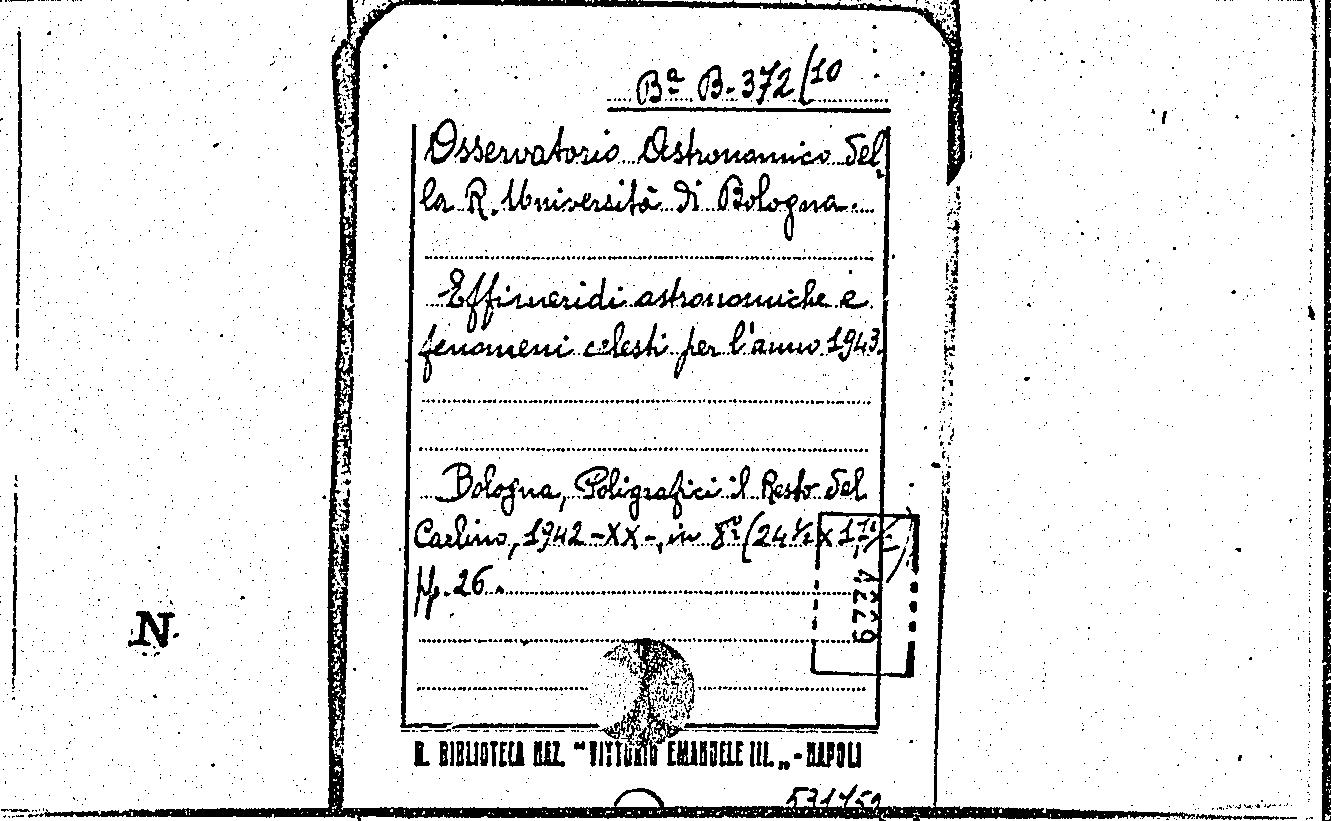 Bª B-372/10
Osservatorio Astronomico del
la R. Università di Bologna.
Effimeridi astronomiche e
fenomeni celesti per l'anno 1943.
Bologna, Poligrafici il Resto del
Carlino, 1942-XX-, in 8º (24 ½ x 17 ½)
pp. 26.
4229
N
R. BIBLIOTECA NAZ. "VITTORIO EMANUELE III„ - NAPOLI